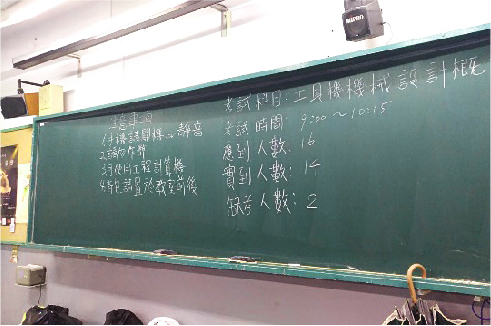 注意事項
1.手機請關機or靜音
2.請勿作弊
3.可使用工程計算機
4.背包請置於教室前後
考試科目:工具機機械設計概
考試時間:9:00~10:15
應到人數:16
實到人數:14
缺考人數:2
MIPRO